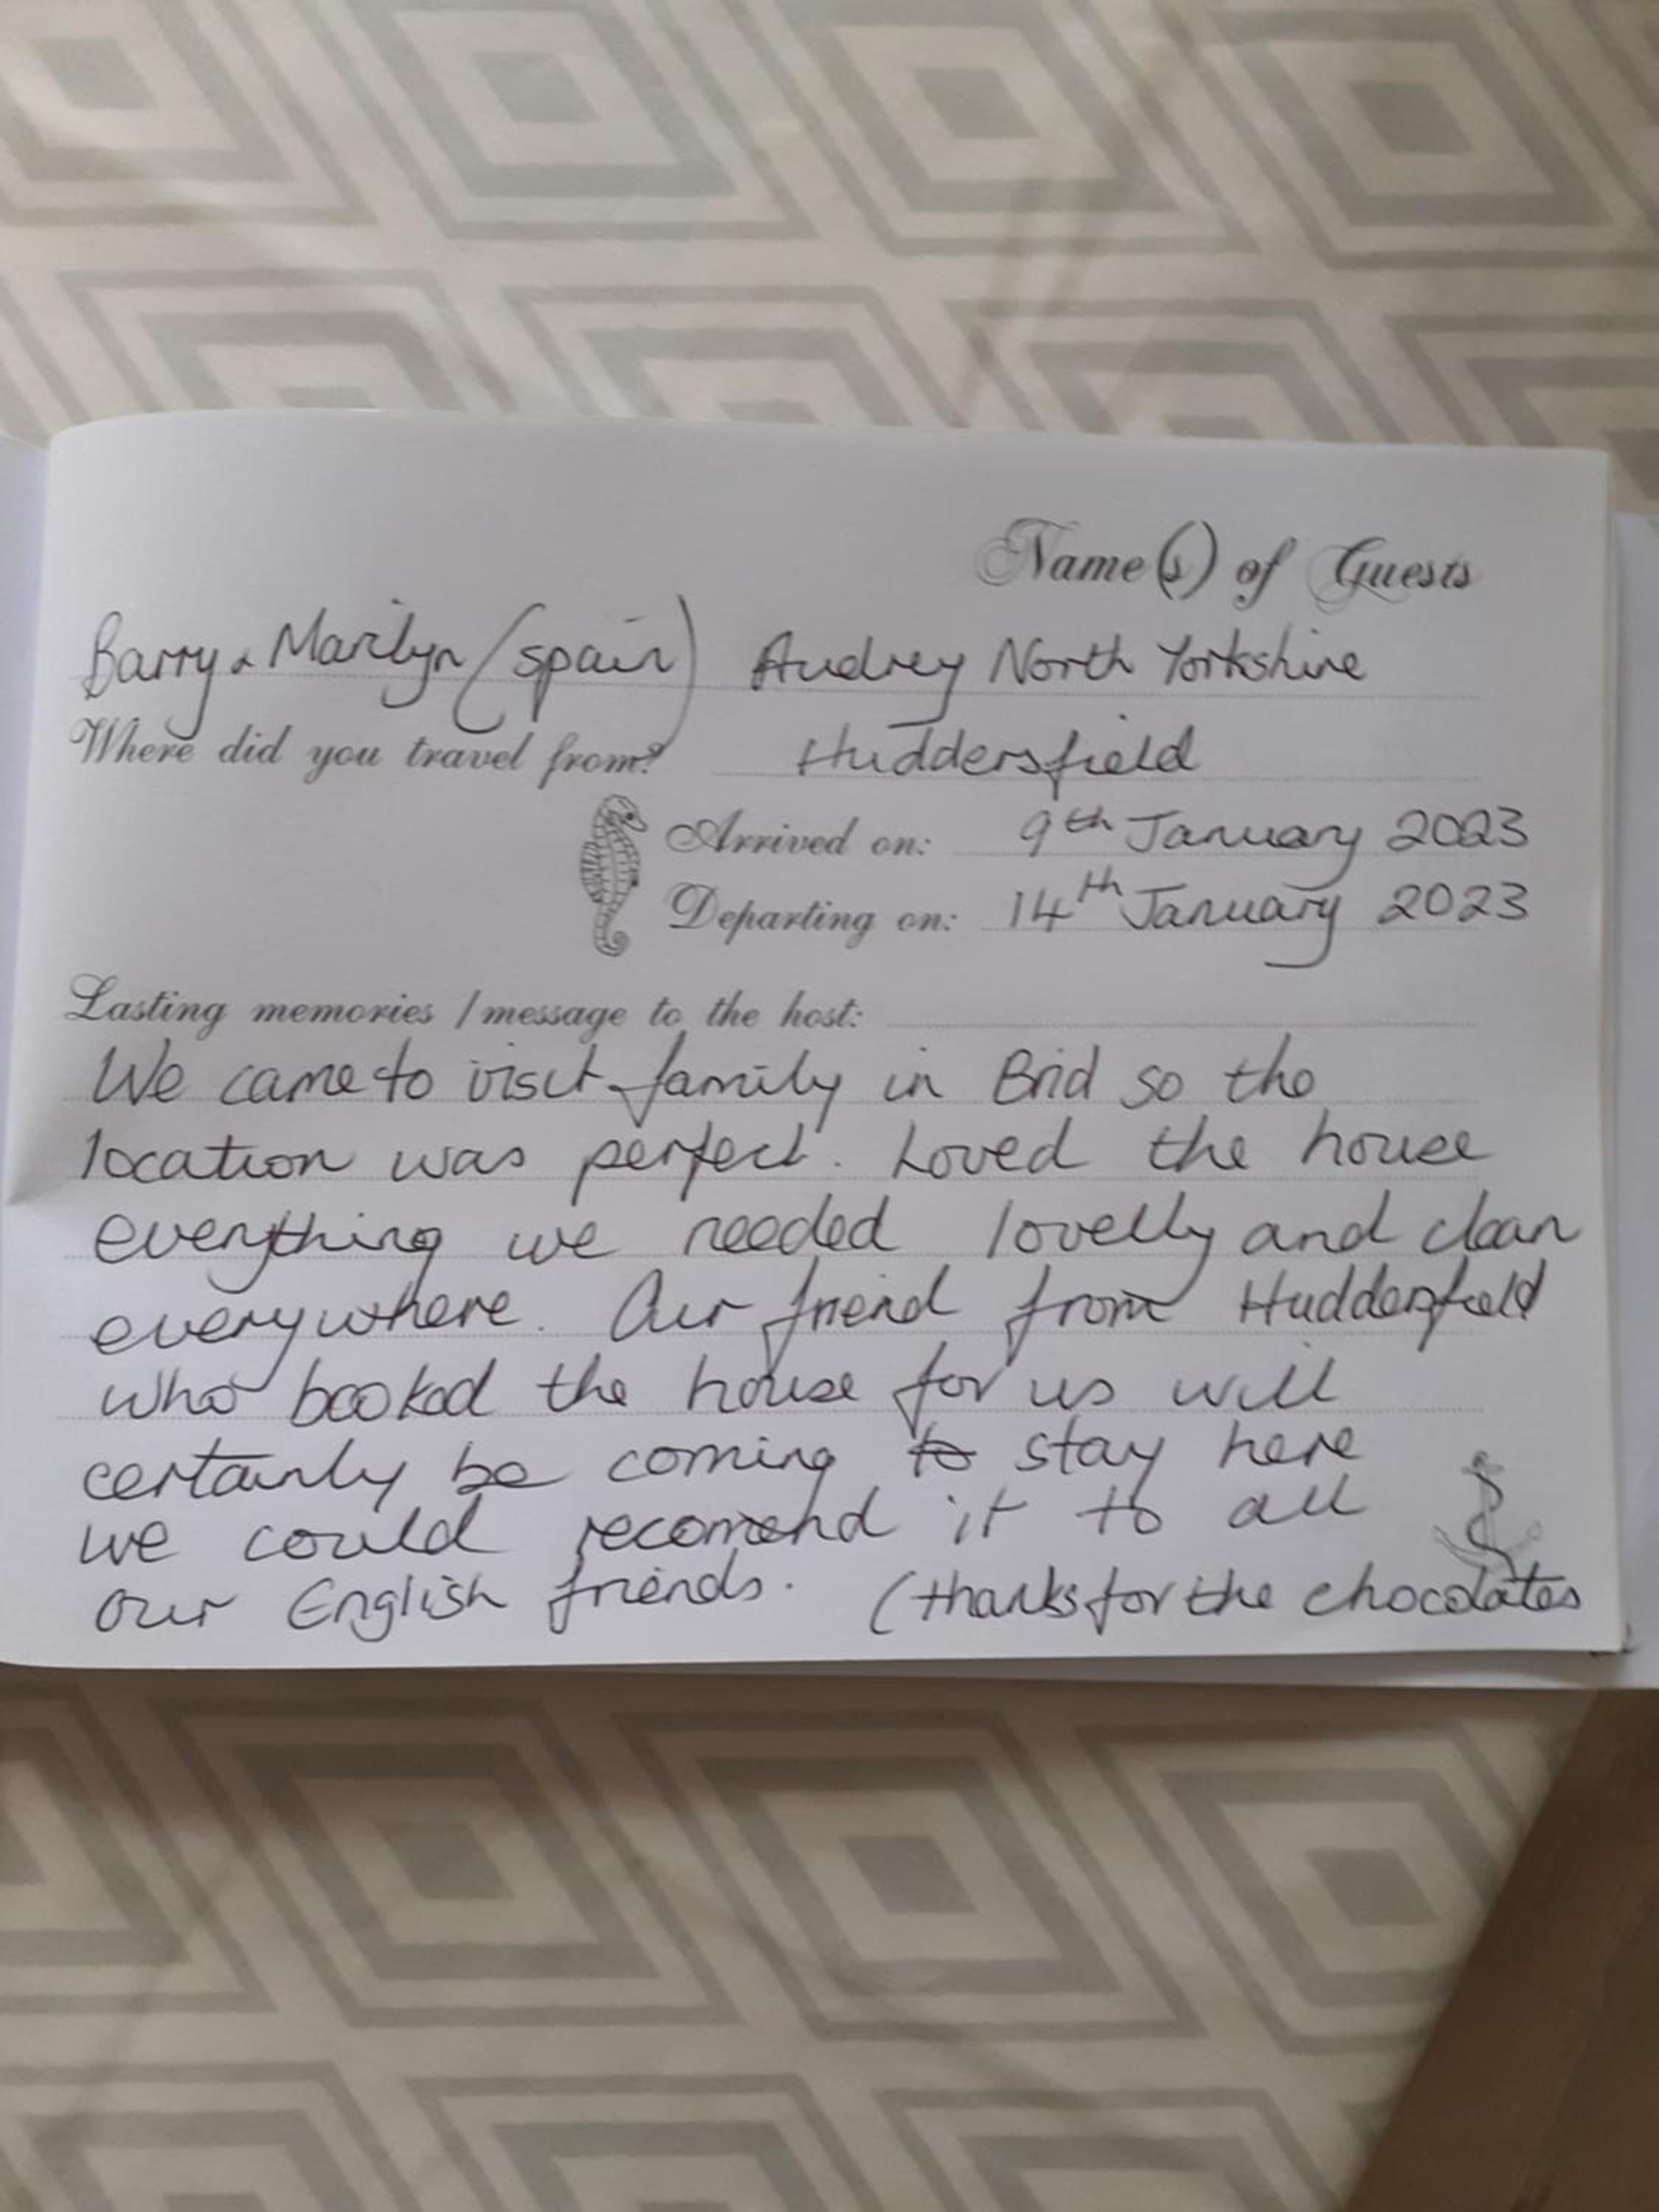 Name(s) of Guests
Barry & Marilyn (spain) Audrey North Yorkshire
Where did you travel from? Huddersfield
Arrived on: 9th January 2023
Departing on: 14th January 2023
Lasting memories / message to the host:
We came to visit family in Brid so the
location was perfect. Loved the house
everything we needed lovelly and clean
everywhere. Our friend from Huddersfield
who booked the house for us will
certainly be coming to stay here
we could recomend it to all
our English friends. (thanks for the chocolates